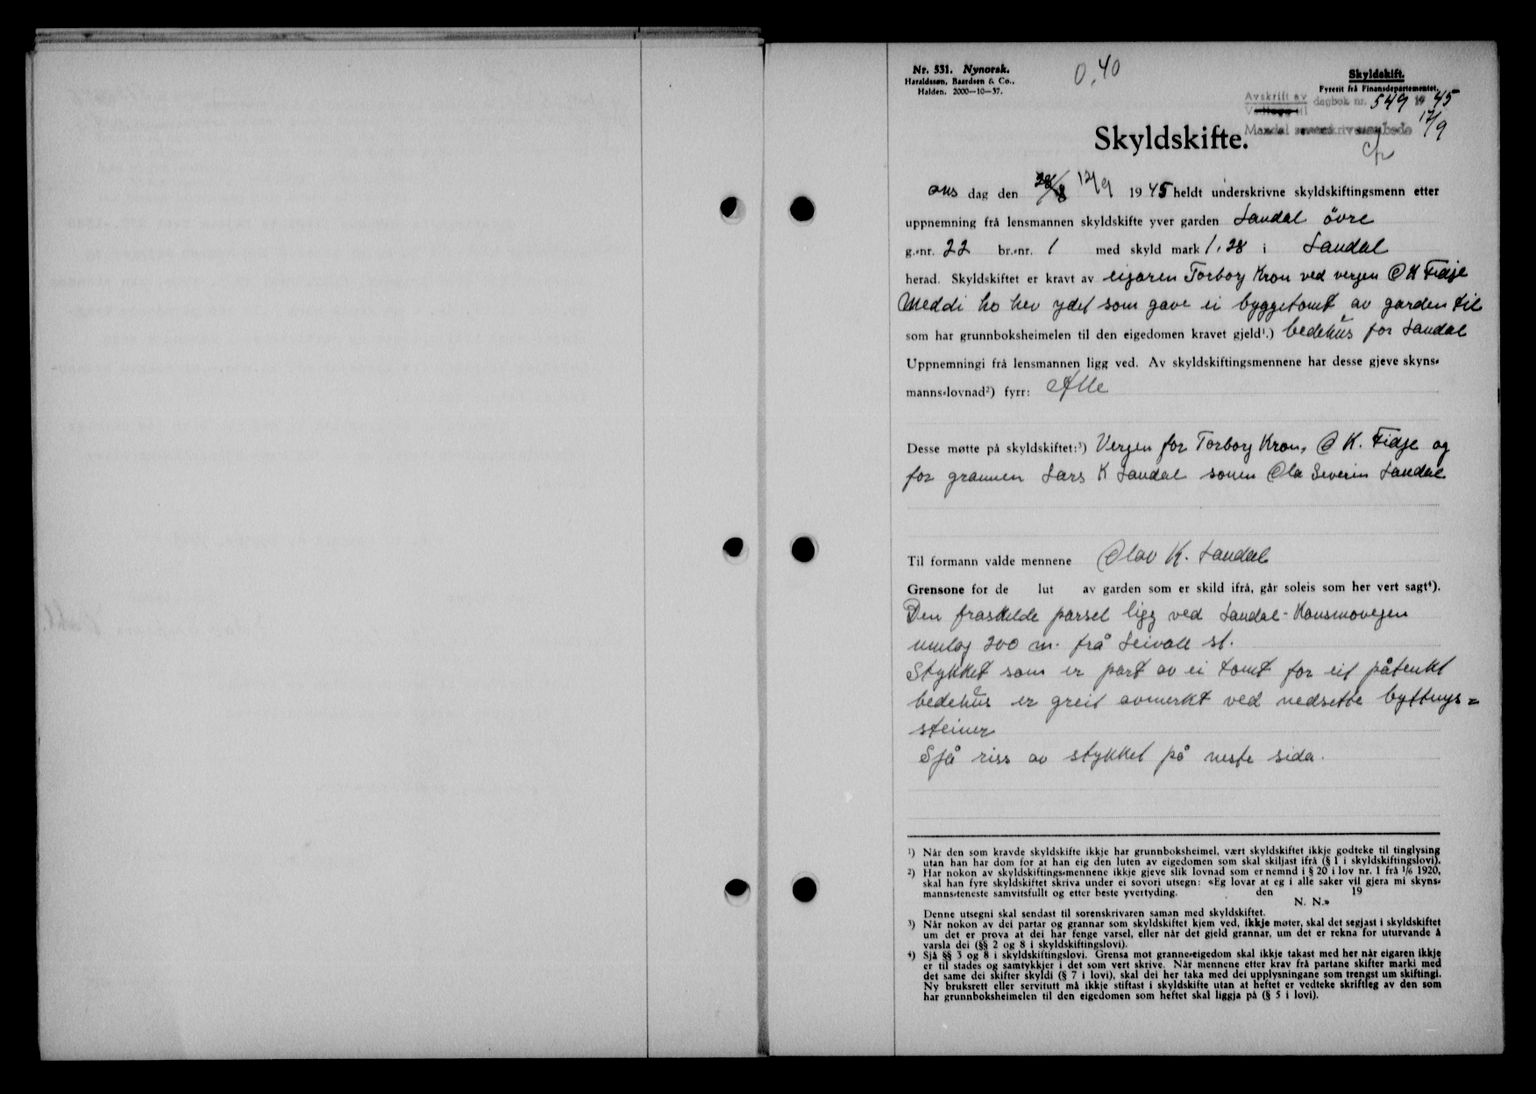 Nr. 531. Nynorsk.
Haraldssen, Baardsen & Co.,
Halden. 2000—10—37.
0,40
Skyldskift.
Fyresit frå Finansdepartementet.
Avskrift av
dagbok nr. 549 1945
12/9
Mandal sorenskrivarembede
Skyldskifte.
ons dag den 28/8 12/9 1945 heldt underskrivne skyldskiftingsmenn etter
uppnemning frå lensmannen skyldskifte yver garden Laudal övre
g.-nr. 22 br.-nr. 1 med skyld mark 1.28 i Laudal
herad. Skyldskiftet er kravt av eigaren Torborg Kron ved vergen O K Fidje
Meddi ho hev ydet som gave ei byggetomt av garden til
som har grunnboksheimelen til den eigedomen kravet gjeld¹.) bedehus for Laudal
Uppnemningi frå lensmannen ligg ved. Av skyldskiftingsmennene har desse gjeve skyns-
manns-lovnad²) fyrr: Alle
Desse møtte på skyldskiftet:³) Vergen for Torborg Kron, O K. Fidje og
for grannen Lars K Laudal sonen Ola Severin Laudal
Til formann valde mennene Olav K. Laudal
Grensone for de lut av garden som er skild ifrå, går soleis som her vert sagt⁴).
Den fraskilde parsel ligg ved Laudal-Hausmovegen
umlag 200 m. frå Leivoll st.
Stykket som er part av ei tomt for eit påtenkt
bedehus er greit avmerkt ved nedsette byttings=
steiner
Sjå riss av stykket på neste sida.
¹) Når den som kravde skyldskifte ikkje har grunnboksheimel, vært skyldskiftet ikkje godteke til tinglysing
utan han har dom for at han eig den luten av eigedomen som skal skiljast ifrå (§ 1 i skyldskiftingslovi).
²) Har nokon av skyldskiftings-mennene ikkje gjeve slik lovnad som er nemnd i § 20 i lov nr. 1 frå 1/6 1920,
skal han fyre skyldskiftet skriva under ei sovori utsegn: «Eg lovar at eg i alle saker vil gjera mi skyns-
manns-teneste samvitsfullt og etter beste yvertyding. den 19
N. N.»
Denne utsegni skal sendast til sorenskrivaren saman med skyldskiftet.
³) Når nokon av dei partar og grannar som skyldskiftet kjem ved, ikkje møter, skal det segjast i skyldskiftet
um det er prova at dei har fenge varsel, eller når det gjeld grannar, um det er rekna for uturvande å
varsla dei (§§ 2 og 8 i skyldskiftingslovi).
⁴) Sjå §§ 3 og 8 i skyldskiftingslovi. Grensa mot granne-eigedom skal ikkje takast med her når eigaren ikkje
er til stades og samtykkjer i det som vert skrive. Når mennene etter krav frå partane skifter marki med
det same dei skifter skyldi (§ 7 i lovi), skal dei her taka med dei upplysningane som trengst um skiftingi.
Ny bruksrett eller servitutt må ikkje stiftast i skyldskifte utan at heftet er vedteke skriftleg av den som
har grunnboksheimelen til den eigedomen som heftet skal liggja på (§ 5 i lovi).